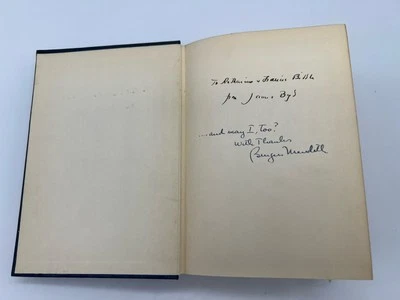 To Katharine & Francis Biddle
from James Boyd
....and may I, Too?
With Thanks
Burgess Meredith